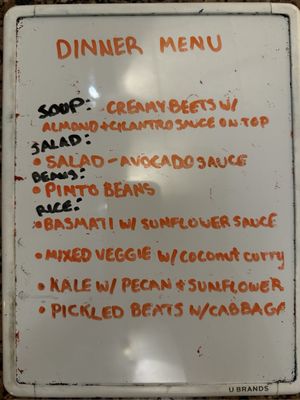 DINNER MENU
SOUP: CREAMY BEETS W/
ALMOND + CILANTRO SAUCE ON TOP
SALAD:
• SALAD - AVOCADO SAUCE
BEANS:
• PINTO BEANS
RICE:
• BASMATI W/ SUNFLOWER SAUCE
• MIXED VEGGIE W/ COCONUT CURRY
• KALE W/ PECAN & SUNFLOWER
• PICKLED BEATS W/CABBAGE
U BRANDS